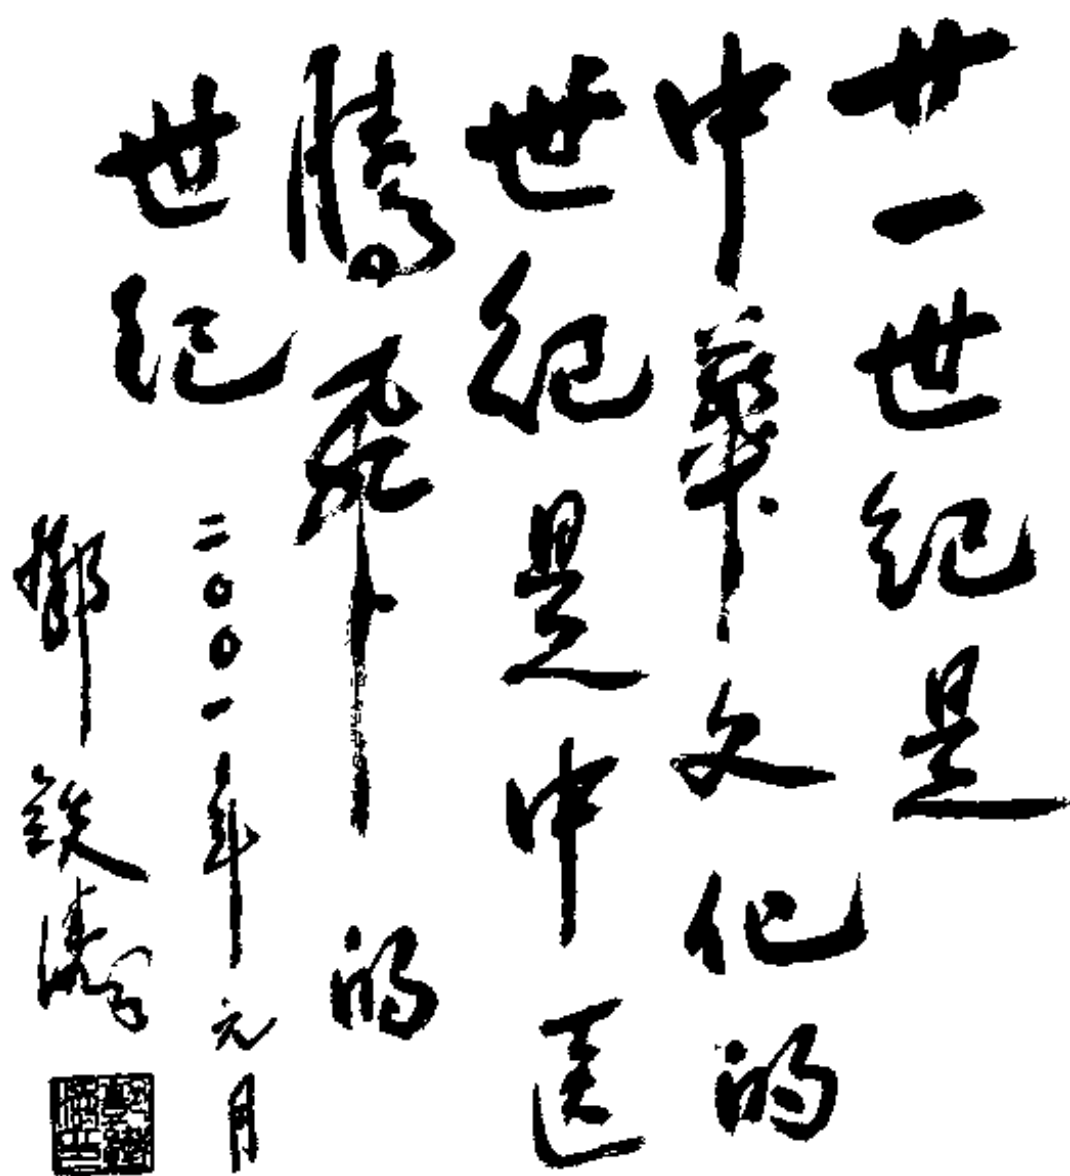 廿一世纪是
中华文化的
世纪是中医
腾飞的
世纪
二〇〇一年元月
邓铁涛